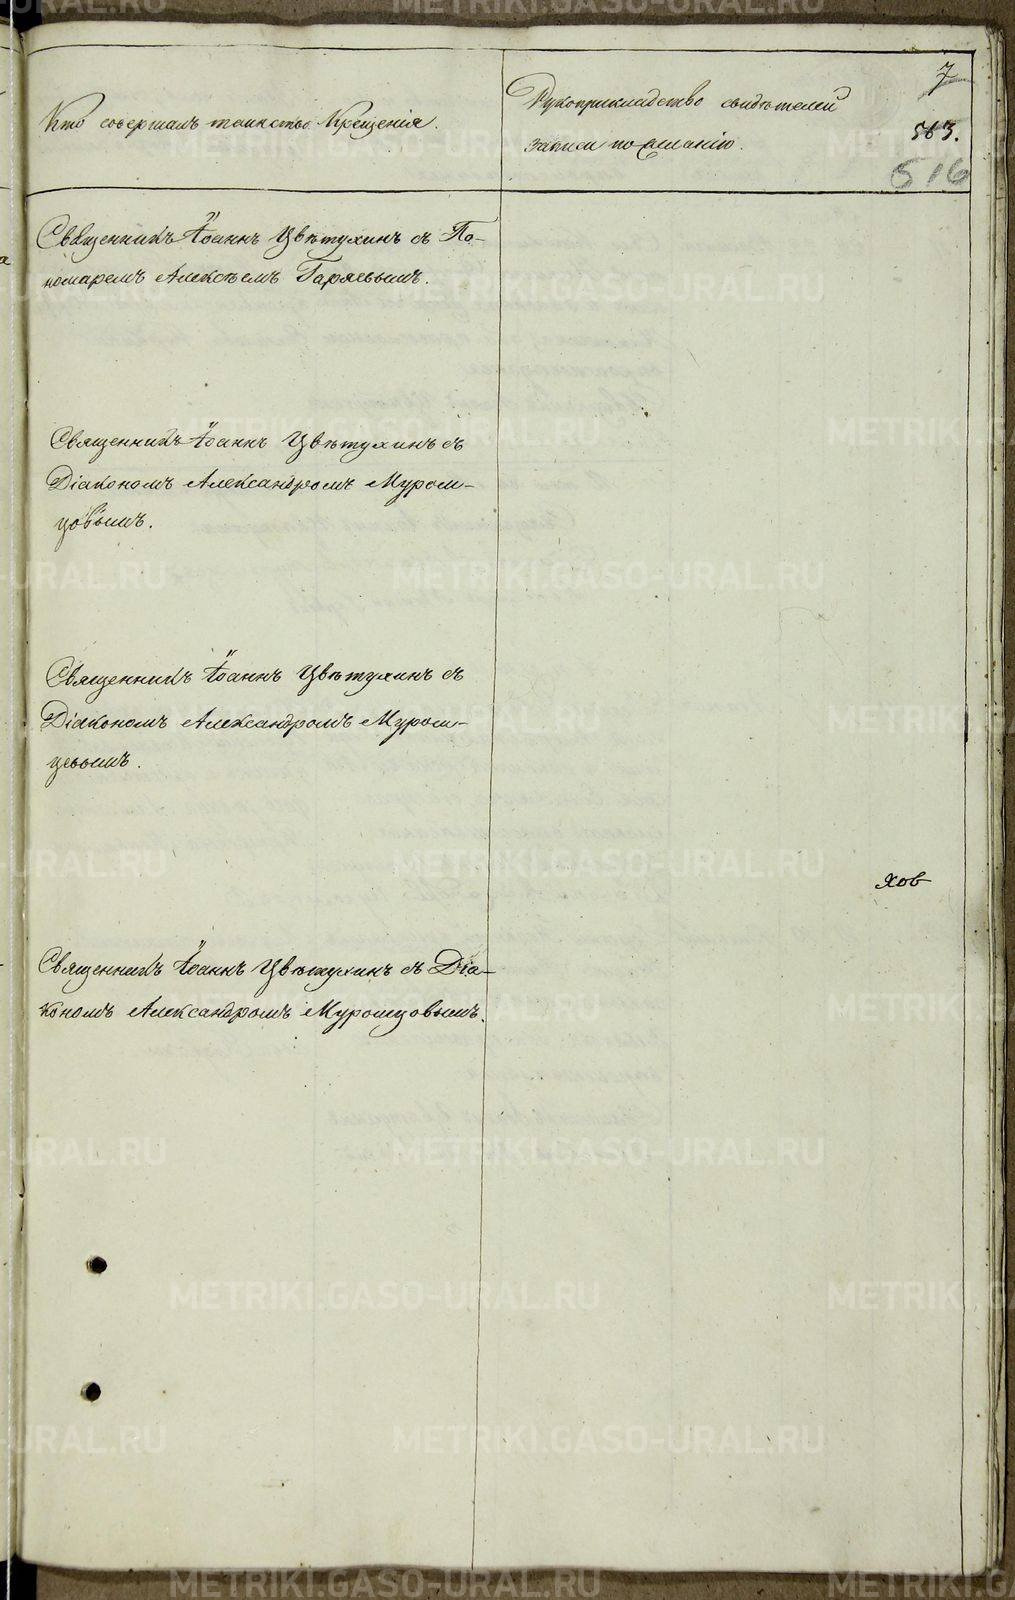 7
Кто совершалъ таинство Крещенія.
Рукоприкладство свидѣтелей
записи по желанію.
563.
516
Священникъ Іоаннъ Цвѣтухинъ съ По-
номаремъ Алексѣемъ Гаряевымъ.
Священникъ Іоаннъ Цвѣтухинъ съ
Діакономъ Александромъ Муром-
цовымъ.
Священникъ Іоаннъ Цвѣтухинъ съ
Діакономъ Александромъ Муром-
цевымъ.
хов
Священникъ Іоаннъ Цвѣтухинъ съ Діа-
кономъ Александромъ Муромцовымъ.
METRIKI.GASO-URAL.RU